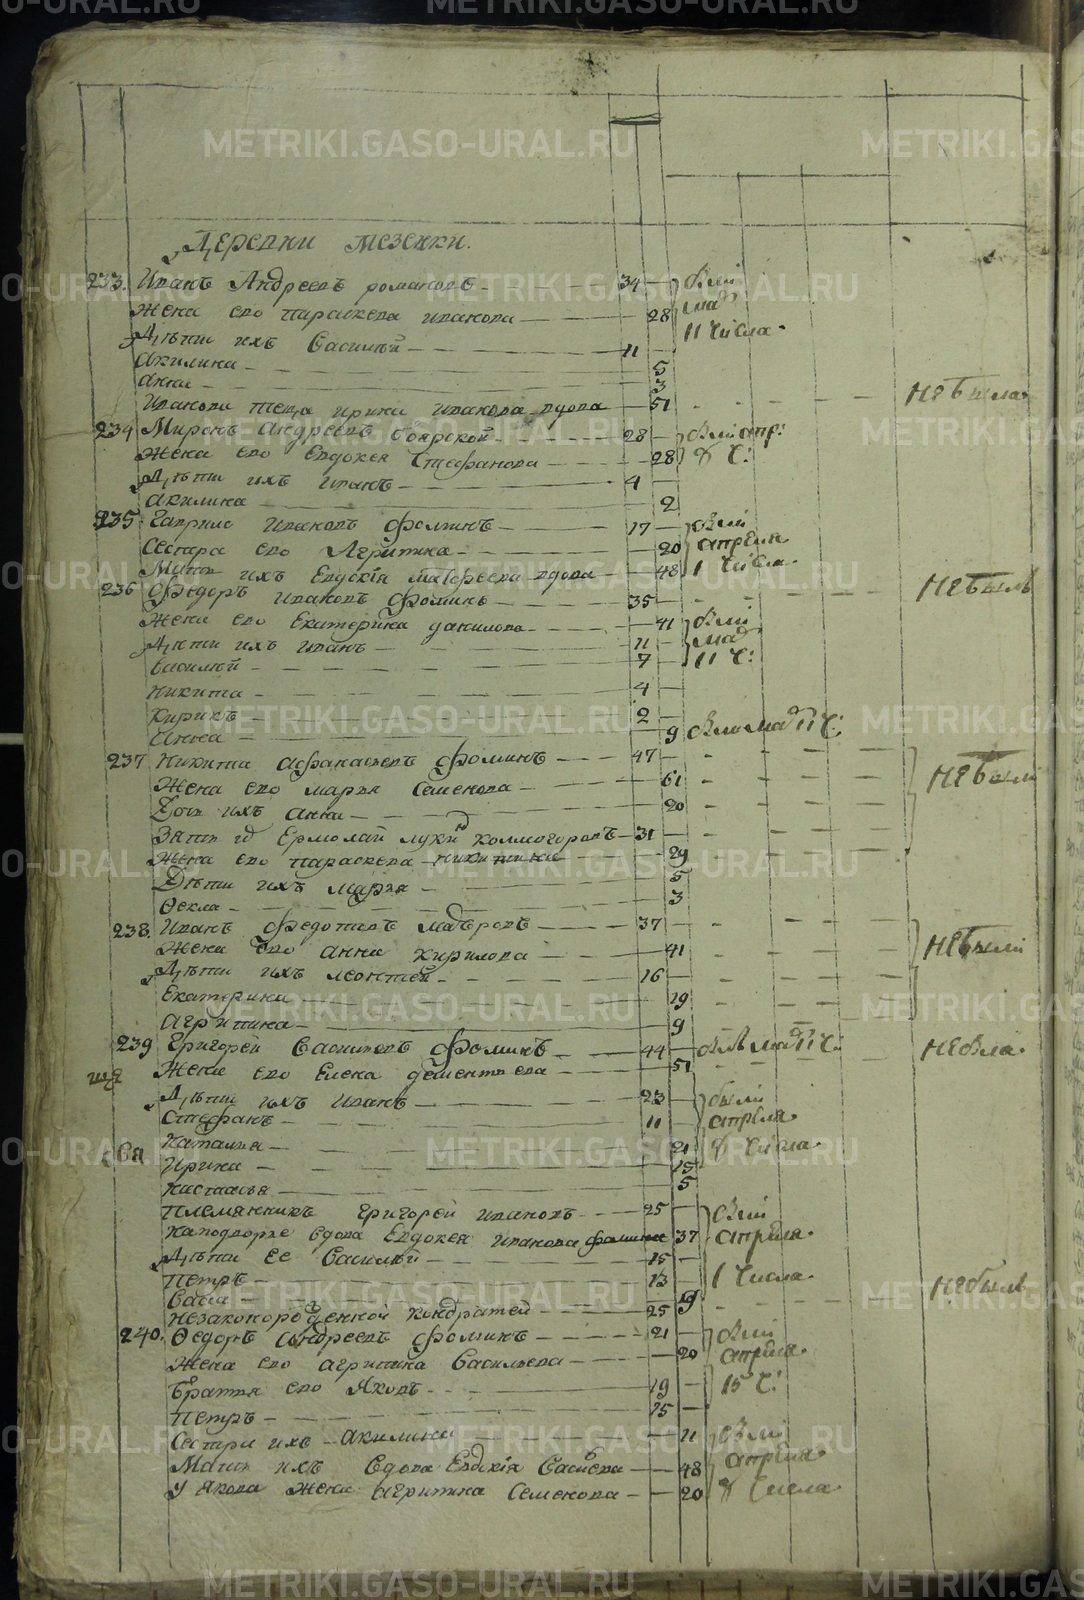 Деревни Мезенки.
233. Иванъ Андреевъ романовъ 34 были
Жена ево параскева иванова 28 маӏа
Дѣти ихъ Василѣй 11 11 числа
Акилина 5
Анна 3
Иванова теща ирина иванова вдова 51 не была
234 Миронъ андреевъ боярской 28 были апр:
Жена ево Евдокея Стефанова 28 8 ч:
Дѣти ихъ иванъ 4
акилина 2
235 Гаврило ивановъ фоминъ 17 были
Сестра ево Агрипина 20 апреля
Мать ихъ Евдокія Матфеева вдова 48 1 числа
236 Федоръ ивановъ фоминъ 35 не былъ
Жена ево Екатерина данилова 41 были
Дѣти ихъ иванъ 11 маӏа
Василѣй 7 11 ч:
Никита 4
Кирикъ 2
Анна 9 была маӏа 11 ч:
237 Никита афанасьевъ фоминъ 47
Жена ево марья Семенова 61 не были
Дочь ихъ анна 20
Зять их Ермолай лукинъ колмогоровъ 31
Жена ево параскева никитина 29
Дѣти ихъ марья 5
Ѳекла 3
238. Иванъ федотовъ мавровъ 37
Жена ево анна кирилова 41 не были
Дѣти ихъ леонтей 16
Екатерина 19
агрипина 9
239 Григорей Васильевъ фоминъ 44 былъ маӏа 11 ч: не была
Жена ево Елена дементьева 51
Дѣти ихъ иванъ 23 были
Стефанъ 11 апреля
Наталья 21 8 числа
Ирина 15
Настасья 5
племянникъ григорей ивановъ 25 были
Наподворье вдова Евдокея иванова фомина 37 апреля
Дѣти ее Василѣй 15
петръ 13 1 числа
Савва 9
Незаконорожденной кондратей 25 не былъ
240. Ѳедоръ андреевъ фоминъ 21 были
Жена ево агрипина Васильева 20 апреля
братья ево Яковъ 19 15 ч:
петръ 15
Сестра ихъ акилина 11 были
Мать ихъ вдова Евдокія 48 апреля
у якова жена агрипина Семенова 20 8 числа
METRIKI.GASO-URAL.RU